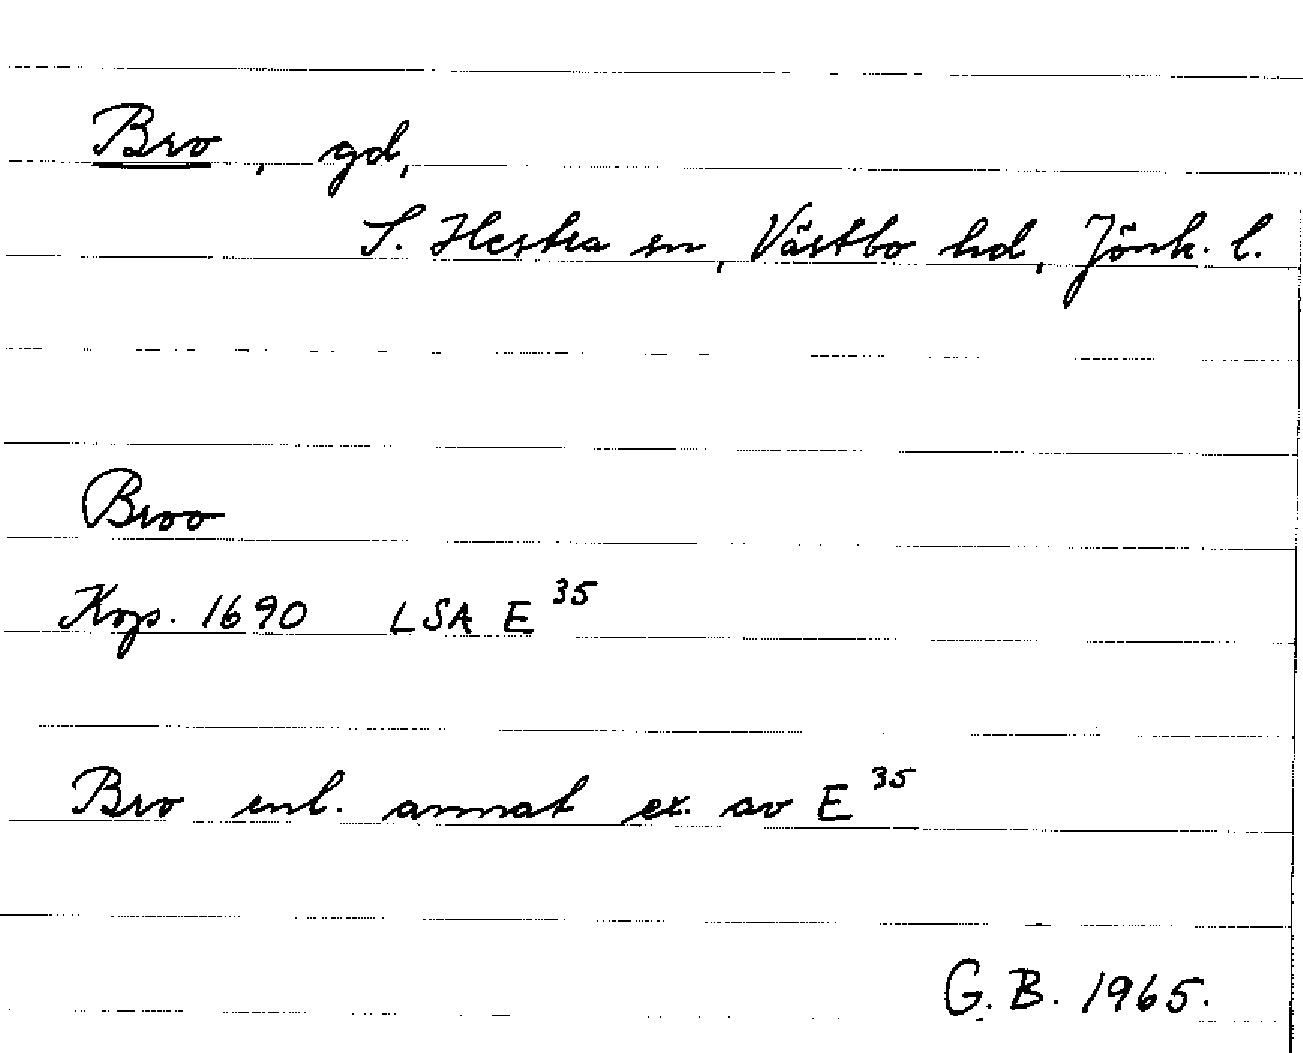 Bro, gd,
S. Hestra sn, Västbo hd, Jönk. l.
Broo
Kop. 1690 LSA E 35
Bro enl. annat ex. av E 35
G. B. 1965.